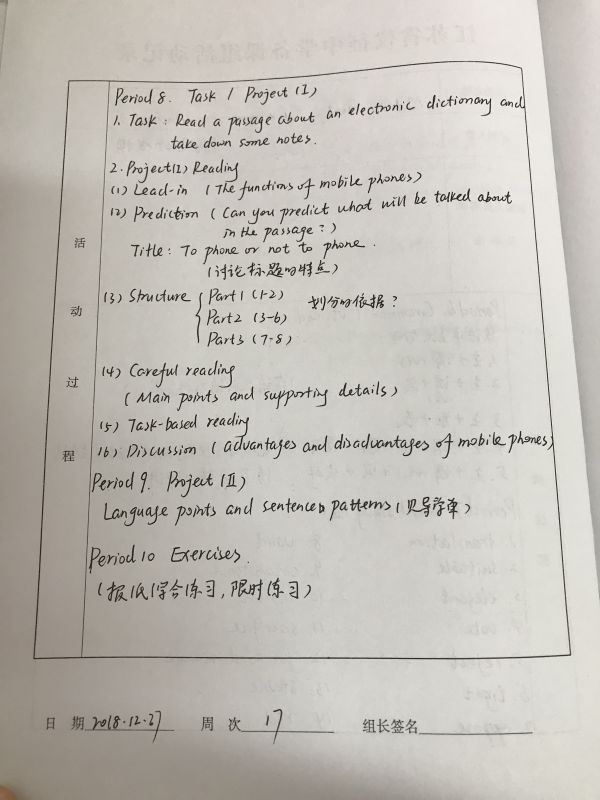 Period 8. Task / Project (I)
1. Task: Read a passage about an electronic dictionary and
take down some notes.
2. Project(I) Reading
(1) Lead-in (The functions of mobile phones)
(2) Prediction (Can you predict what will be talked about
in the passage?)
Title: To phone or not to phone.
(讨论标题的特点)
(3) Structure { Part 1 (1-2) 划分的依据?
Part 2 (3-6)
Part 3 (7-8)
(4) Careful reading
(Main points and supporting details)
(5) Task-based reading
(6) Discussion (advantages and disadvantages of mobile phones)
Period 9. Project (II)
Language points and sentences patterns (见导学单)
Period 10 Exercises.
(报纸综合练习, 限时练习)
活动过程
日 期 2018.12.27 周 次 17 组长签名